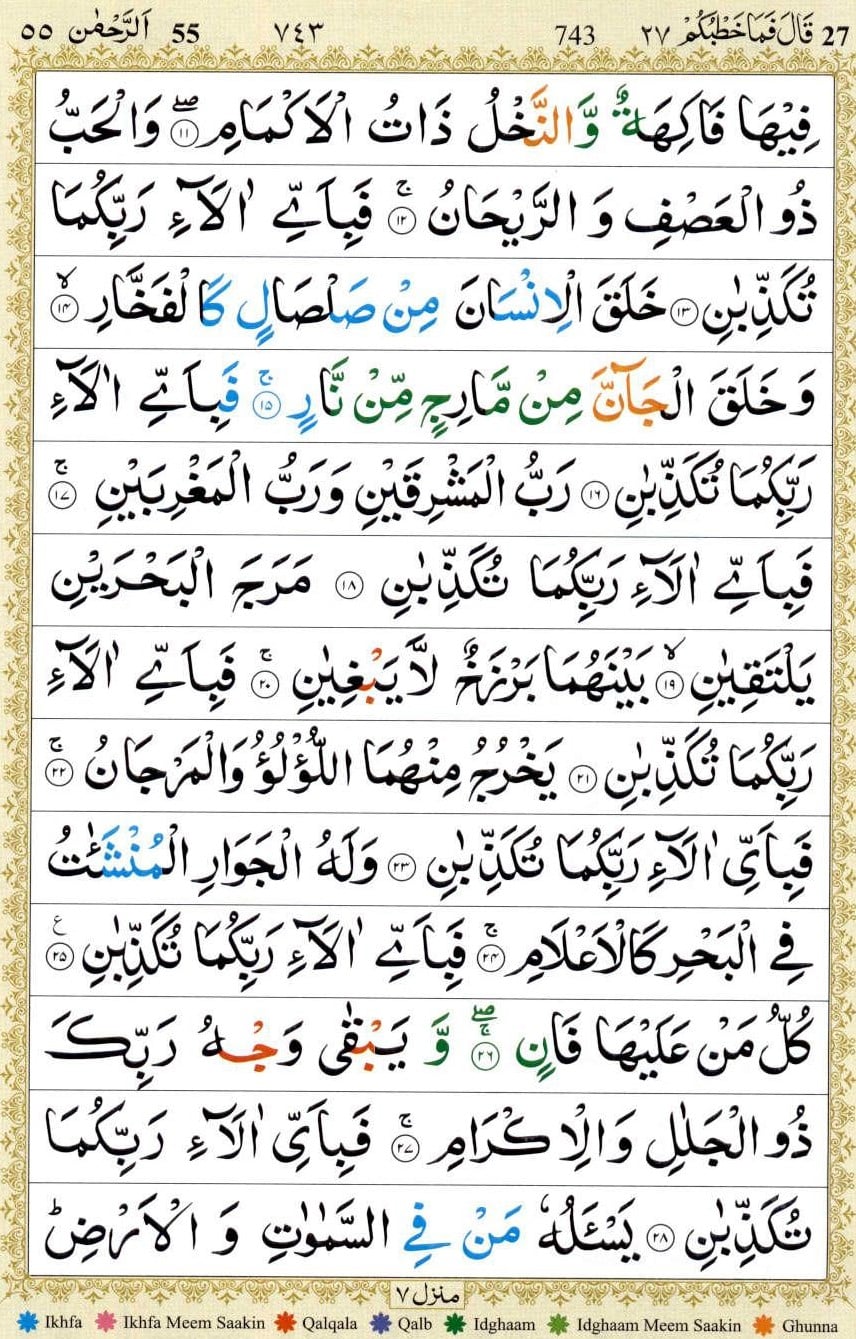 27 قَالَ فَمَا خَطْبُكُمْ ٢٧ 743 ٧٤٣ 55 اَلرَّحْمٰن ٥٥
فِيْهَا فَاكِهَةٌ وَّالنَّخْلُ ذَاتُ الْاَكْمَامِ ۖ ﴿۱۱﴾ وَالْحَبُّ
ذُو الْعَصْفِ وَ الرَّيْحَانُ ۚ ﴿۱۲﴾ فَبِاَيِّ اٰلَآءِ رَبِّكُمَا
تُكَذِّبٰنِ ﴿۱۳﴾ خَلَقَ الْاِنْسَانَ مِنْ صَلْصَالٍ كَالْفَخَّارِ ۙ ﴿۱۴﴾
وَ خَلَقَ الْجَآنَّ مِنْ مَّارِجٍ مِّنْ نَّارٍ ۚ ﴿۱۵﴾ فَبِاَيِّ اٰلَآءِ
رَبِّكُمَا تُكَذِّبٰنِ ﴿۱۶﴾ رَبُّ الْمَشْرِقَيْنِ وَرَبُّ الْمَغْرِبَيْنِ ۚ ﴿۱۷﴾
فَبِاَيِّ اٰلَآءِ رَبِّكُمَا تُكَذِّبٰنِ ﴿۱۸﴾ مَرَجَ الْبَحْرَيْنِ
يَلْتَقِيٰنِ ۙ ﴿۱۹﴾ بَيْنَهُمَا بَرْزَخٌ لَّا يَبْغِيٰنِ ۚ ﴿۲۰﴾ فَبِاَيِّ اٰلَآءِ
رَبِّكُمَا تُكَذِّبٰنِ ﴿۲۱﴾ يَخْرُجُ مِنْهُمَا اللُّؤْلُؤُ وَالْمَرْجَانُ ۚ ﴿۲۲﴾
فَبِاَيِّ اٰلَآءِ رَبِّكُمَا تُكَذِّبٰنِ ﴿۲۳﴾ وَلَهُ الْجَوَارِ الْمُنْشَئٰتُ
فِي الْبَحْرِ كَالْاَعْلَامِ ۚ ﴿۲۴﴾ فَبِاَيِّ اٰلَآءِ رَبِّكُمَا تُكَذِّبٰنِ ع ﴿۲۵﴾
كُلُّ مَنْ عَلَيْهَا فَانٍ ۚۖ ﴿۲۶﴾ وَّ يَبْقٰى وَجْهُ رَبِّكَ
ذُو الْجَلٰلِ وَالْاِكْرَامِ ۚ ﴿۲۷﴾ فَبِاَيِّ اٰلَآءِ رَبِّكُمَا
تُكَذِّبٰنِ ﴿۲۸﴾ يَسْـَٔلُهٗ مَنْ فِي السَّمٰوٰتِ وَ الْاَرْضِ ؕ
منزل ٧
Ikhfa Ikhfa Meem Saakin Qalqala Qalb Idghaam Idghaam Meem Saakin Ghunna